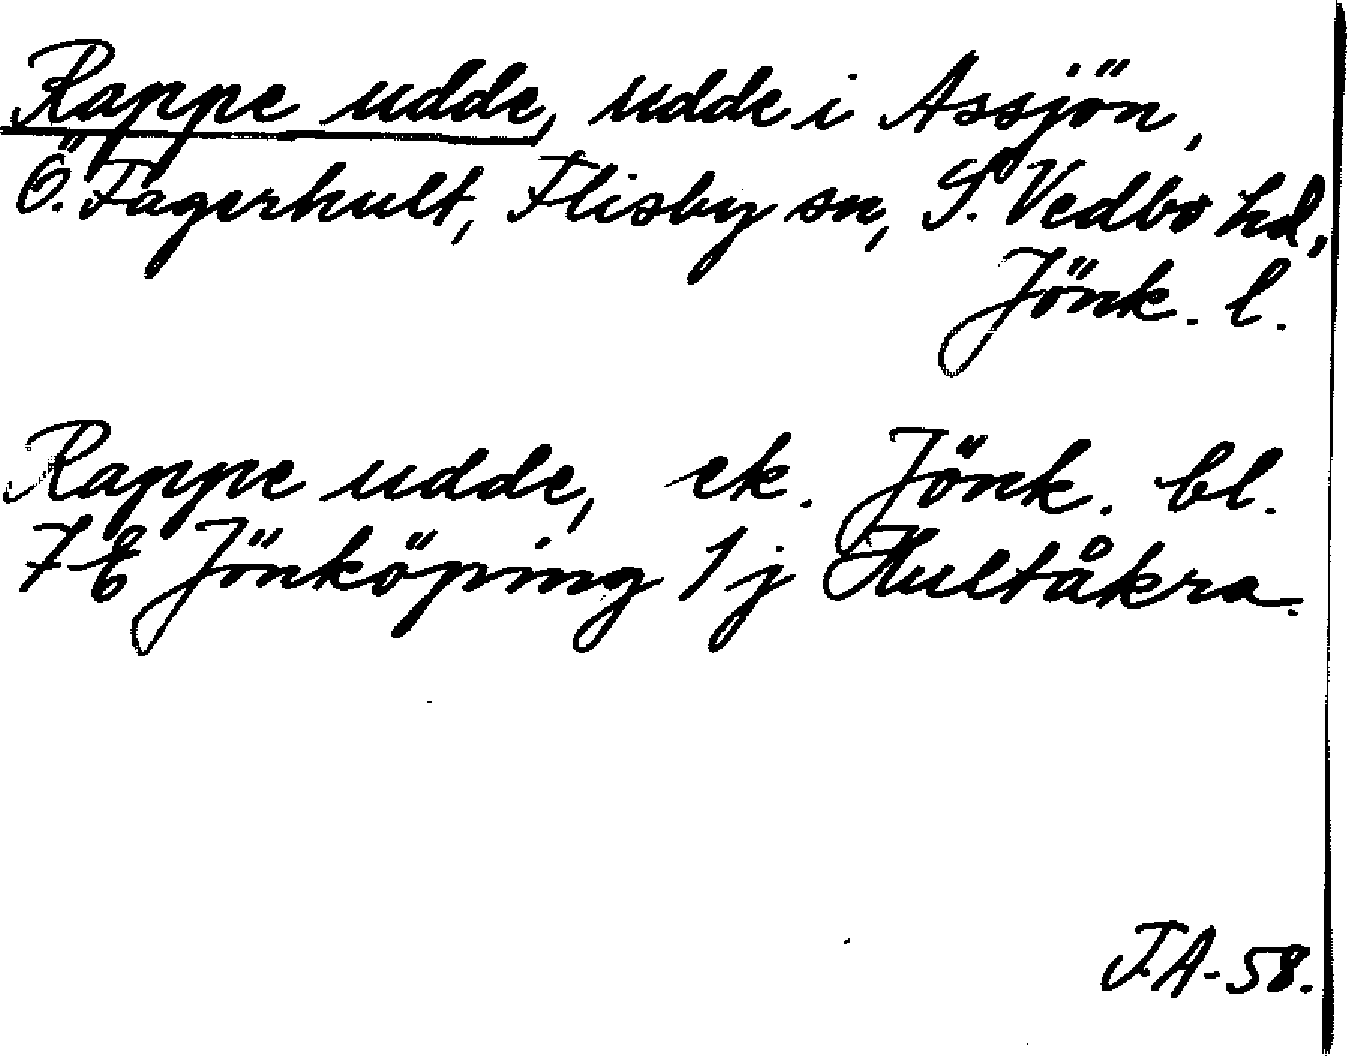 Rappe udde, udde i Assjön,
Ö. Fagerhult, Flisby sn, S. Vedbo hd,
Jönk. l.
Rappe udde, ek. Jönk. bl.
7E Jönköping 1j Hultåkra.
F.A-58.